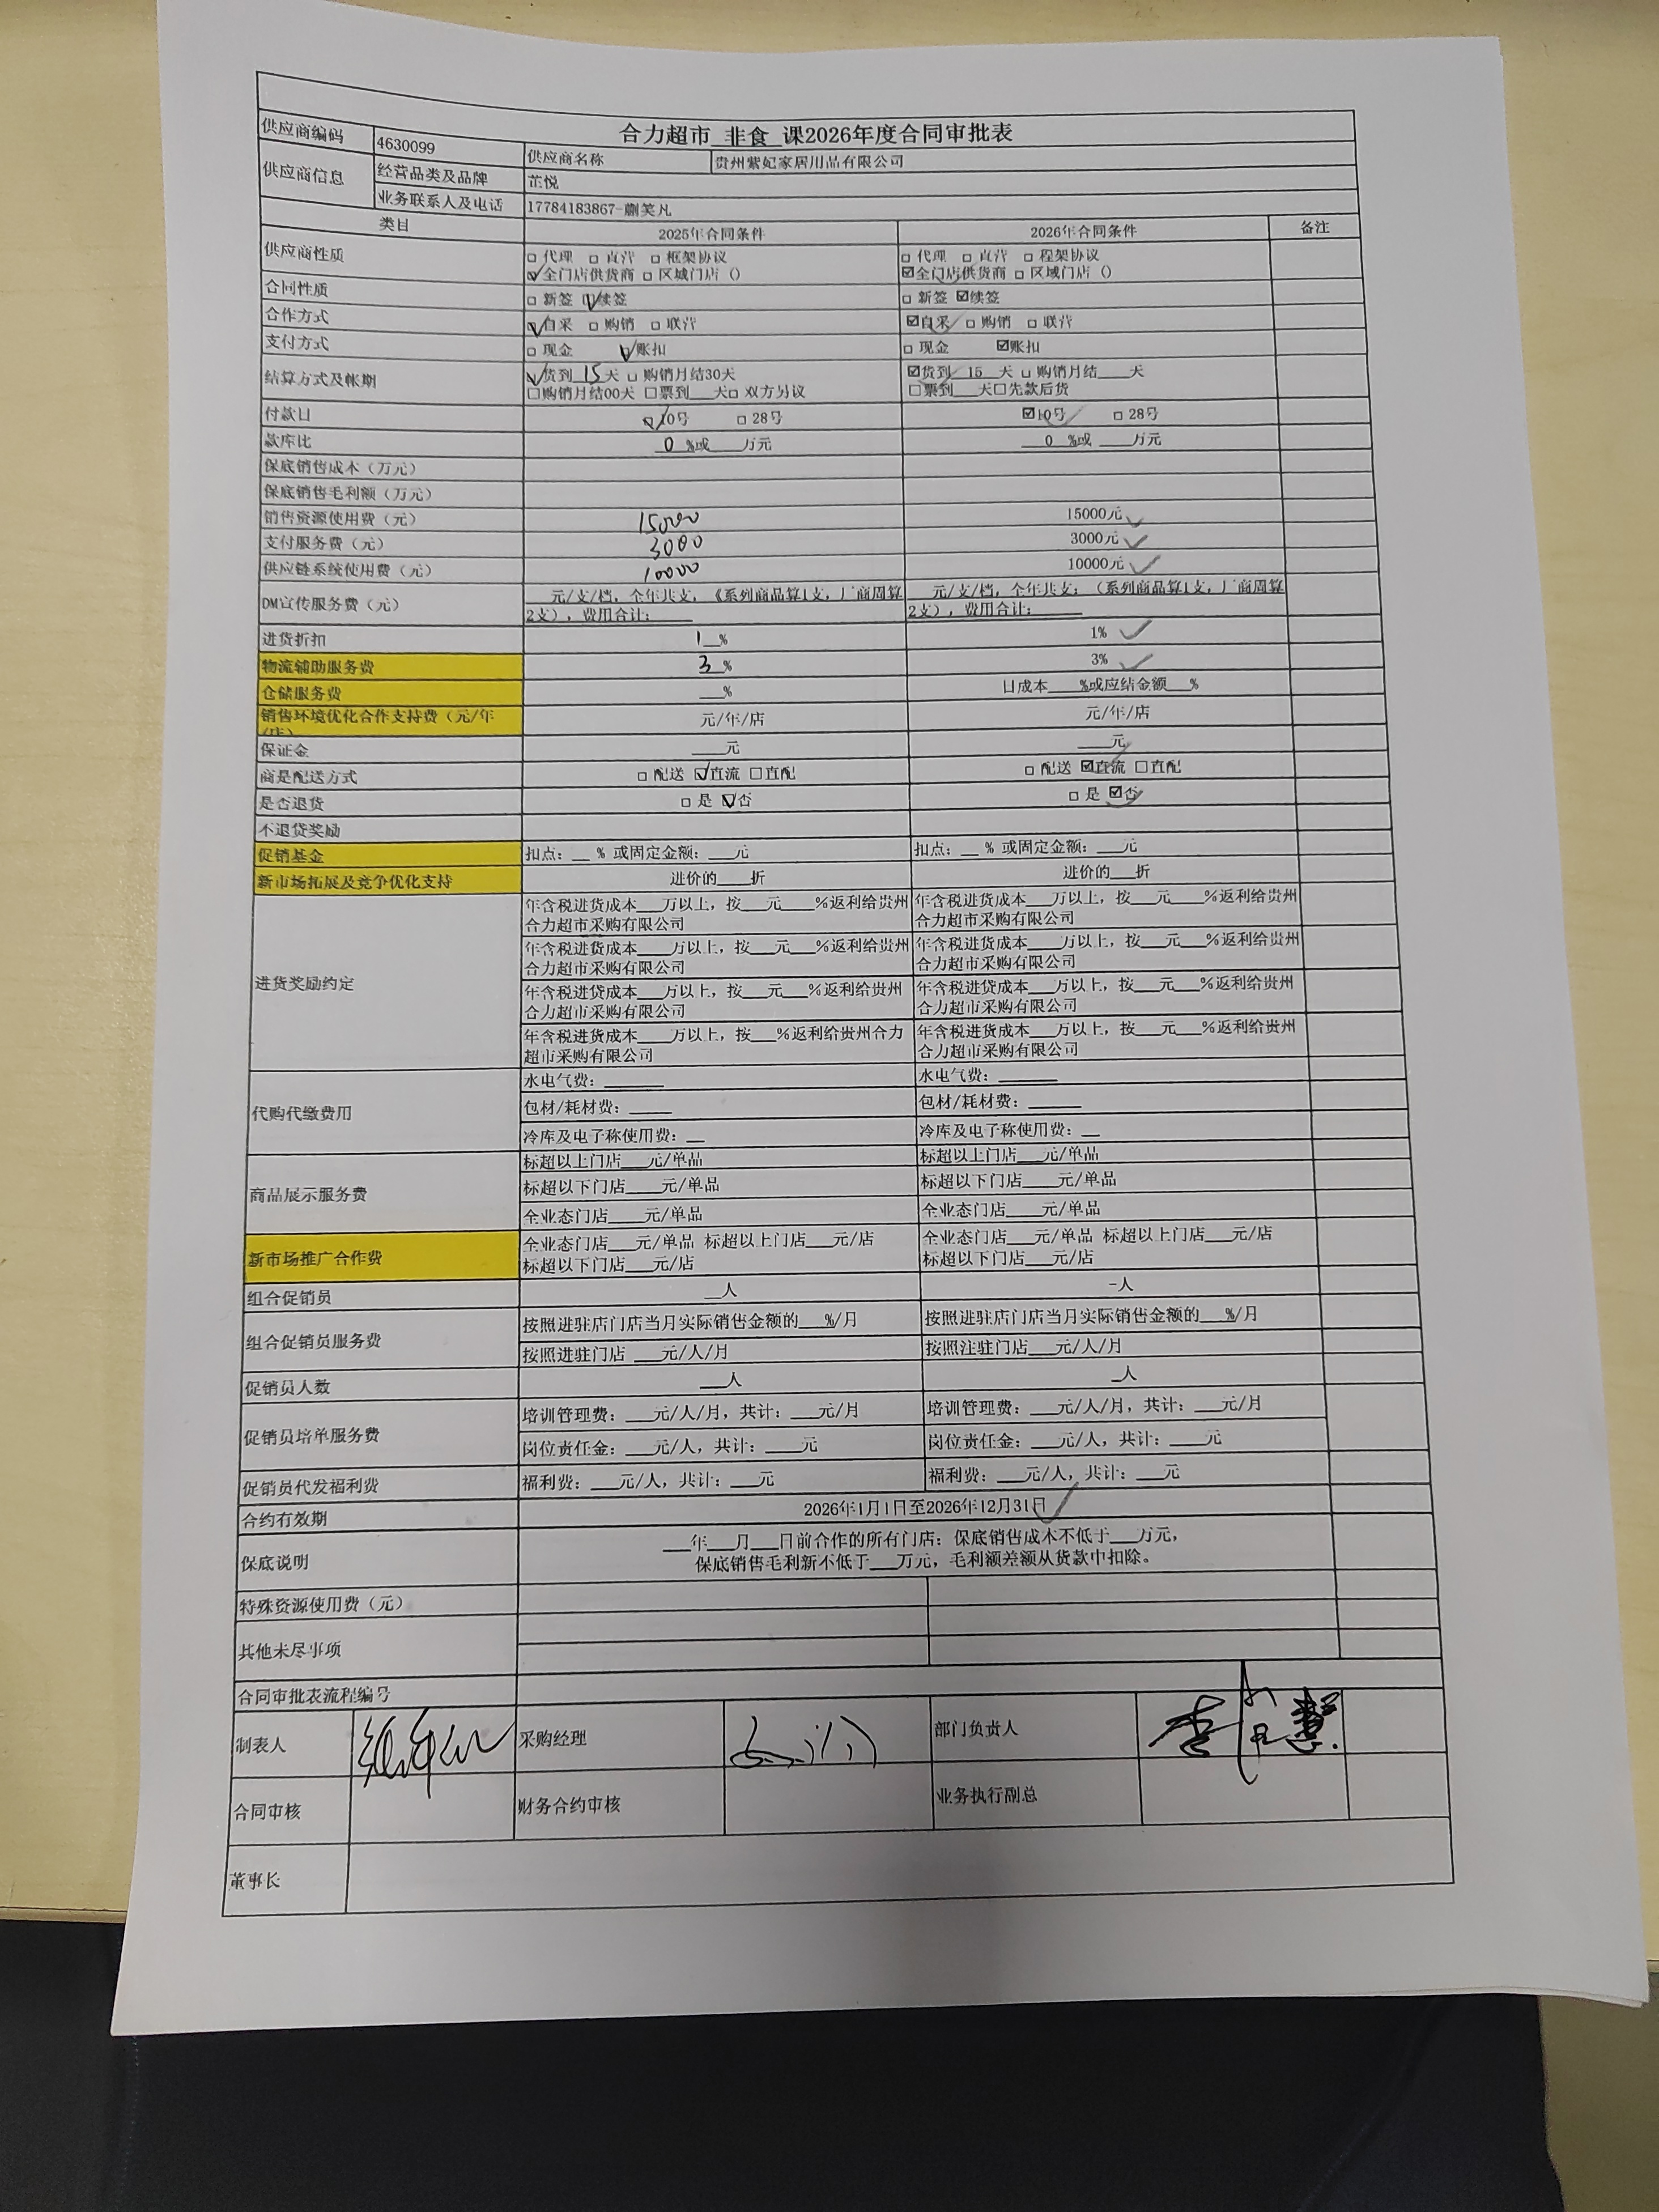 合力超市 非食 课2026年度合同审批表
供应商编码 4630099 供应商名称 贵州紫妃家居用品有限公司
供应商信息 经营品类及品牌 芷悦
业务联系人及电话 17784183867-蒯笑凡
类目 2025年合同条件 2026年合同条件 备注
供应商性质 □代理 □直营 □框架协议 □代理 □直营 □程架协议
☑全门店供货商 □区域门店（） ☑全门店供货商 □区域门店（）
合同性质 □新签 ☑续签 □新签 ☑续签
合作方式 ☑自采 □购销 □联营 ☑自采 □购销 □联营
支付方式 □现金 ☑账扣 □现金 ☑账扣
结算方式及帐期 ☑货到 15 天 □购销月结30天 ☑货到 15 天 □购销月结___天
□购销月结00天 □票到___天□ 双方另议 □票到___天□先款后货
付款日 ☑10号 □28号 ☑10号 □28号
款库比 0 %或___万元 0 %或___万元
保底销售成本（万元）
保底销售毛利额（万元）
销售资源使用费（元） 15000 15000元
支付服务费（元） 3000 3000元
供应链系统使用费（元） 10000 10000元
DM宣传服务费（元） 元/支/档，全年共支，《系列商品算1支，厂商周算 元/支/档，全年共支；（系列商品算1支，厂商周算
2支），费用合计：____ 2支），费用合计：____
进货折扣 1 % 1%
物流辅助服务费 3 % 3%
仓储服务费 ___% 日成本___%或应结金额___%
销售环境优化合作支持费（元/年/店） 元/年/店 元/年/店
保证金 ___元 ___元
商是配送方式 □配送 ☑直流 □直配 □配送 ☑直流 □直配
是否退货 □是 ☑否 □是 ☑否
不退货奖励
促销基金 扣点：__ % 或固定金额：___元 扣点：__ % 或固定金额：___元
新市场拓展及竞争优化支持 进价的___折 进价的___折
进货奖励约定
年含税进货成本___万以上，按___元___%返利给贵州 年含税进货成本___万以上，按___元___%返利给贵州
合力超市采购有限公司 合力超市采购有限公司
年含税进货成本___万以上，按___元___%返利给贵州 年含税进货成本___万以上，按___元___%返利给贵州
合力超市采购有限公司 合力超市采购有限公司
年含税进货成本___万以上，按___元___%返利给贵州 年含税进货成本___万以上，按___元___%返利给贵州
合力超市采购有限公司 合力超市采购有限公司
年含税进货成本___万以上，按___%返利给贵州合力 年含税进货成本___万以上，按___元___%返利给贵州
超市采购有限公司 合力超市采购有限公司
代购代缴费用
水电气费：____ 水电气费：____
包材/耗材费：____ 包材/耗材费：____
冷库及电子称使用费：__ 冷库及电子称使用费：__
商品展示服务费
标超以上门店___元/单品 标超以上门店___元/单品
标超以下门店___元/单品 标超以下门店___元/单品
全业态门店___元/单品 全业态门店___元/单品
新市场推广合作费
全业态门店___元/单品 标超以上门店___元/店 全业态门店___元/单品 标超以上门店___元/店
标超以下门店___元/店 标超以下门店___元/店
组合促销员 __人 -人
组合促销员服务费
按照进驻店门店当月实际销售金额的___%/月 按照进驻店门店当月实际销售金额的___%/月
按照进驻门店 ___元/人/月 按照注驻门店___元/人/月
促销员人数 ___人 _人
促销员培单服务费
培训管理费：___元/人/月，共计：___元/月 培训管理费：___元/人/月，共计：___元/月
岗位责任金：___元/人，共计：___元 岗位责任金：___元/人，共计：___元
促销员代发福利费 福利费：___元/人，共计：___元 福利费：___元/人，共计：___元
合约有效期 2026年1月1日至2026年12月31日
保底说明
___年___月___日前合作的所有门店：保底销售成本不低于___万元，
保底销售毛利新不低于___万元，毛利额差额从货款中扣除。
特殊资源使用费（元）
其他未尽事项
合同审批表流程编号
制表人 采购经理 部门负责人
合同审核 财务合约审核 业务执行副总
董事长